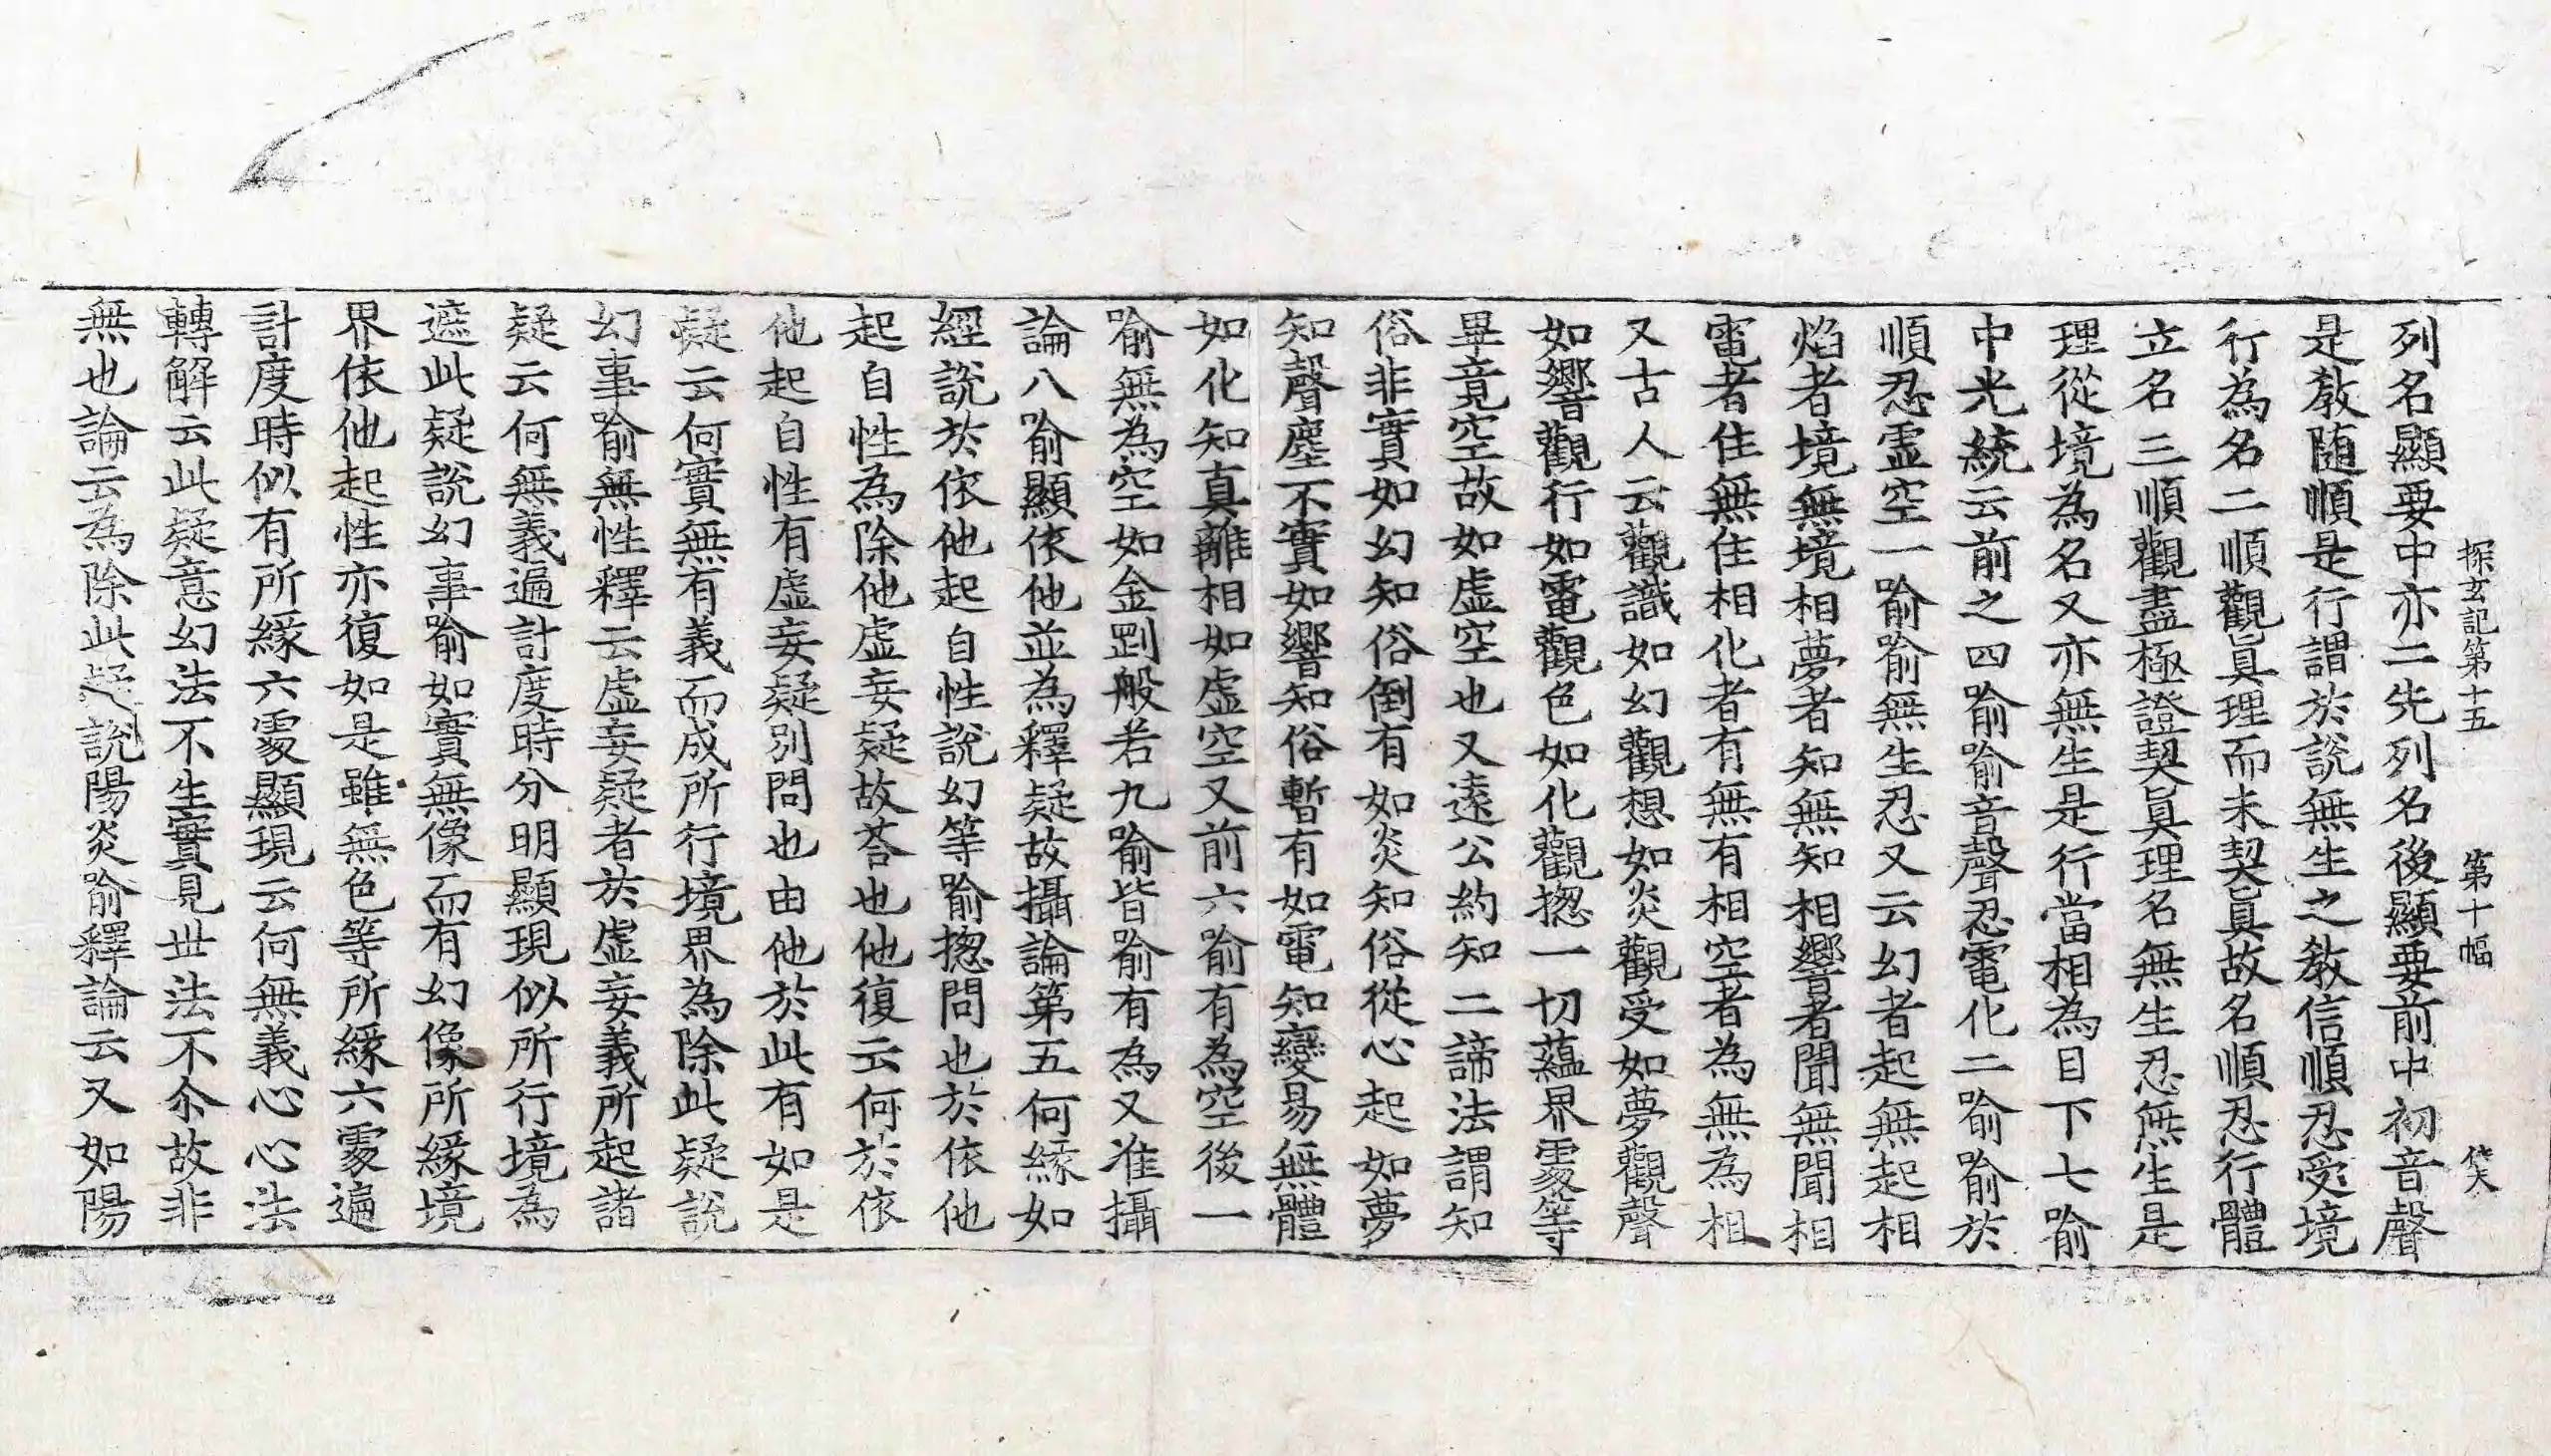 探玄記第十五 第十幅 㑀
列名顯要中亦二先列名後顯要前中初音聲
是教随順是行謂於說無生之教信順忍受境
行為名二順觀眞理而未契眞故名順忍行體
立名三順觀盡極證契眞理名無生忍無生是
理從境為名又亦無生是行當相為目下七喻
中光統云前之四喻喻音聲忍電化二喻喻於
順忍虛空一喻喻無生忍又云幻者起無起相
焰者境無境相夢者知無知相響者聞無聞相
電者住無住相化者有無有相空者為無為相
又古人云觀識如幻觀想如炎觀受如夢觀聲
如響觀行如電觀色如化觀揔一切蘊界䖏等
畢竟空故如虛空也又遠公約知二諦法謂知
俗非實如幻知俗倒有如炎知俗從心起如夢
知聲塵不實如響知俗暫有如電知變易無體
如化知真離相如虛空又前六喻有為空後一
喻無為空如金剛般若九喻皆喻有為又准攝
論八喻顯依他並為釋疑故攝論第五何緣如
經說於依他起自性說幻等喻揔問也於依他
起自性為除他虛妄疑故荅也他復云何於依
他起自性有虛妄疑別問也由他於此有如是
疑云何實無有義而成所行境界為除此疑說
幻事喻無性釋云虛妄疑者於虛妄義所起諸
疑云何無義遍計度時分明顯現似所行境為
遮此疑說幻事喻如實無像而有幻像所緣境
界依他起性亦復如是雖無色等所緣六䖏遍
計度時似有所緣六䖏顯現云何無義心心法
轉解云此疑意幻法不生實見世法不尒故非
無也論云為除此疑說陽炎喻釋論云又如陽